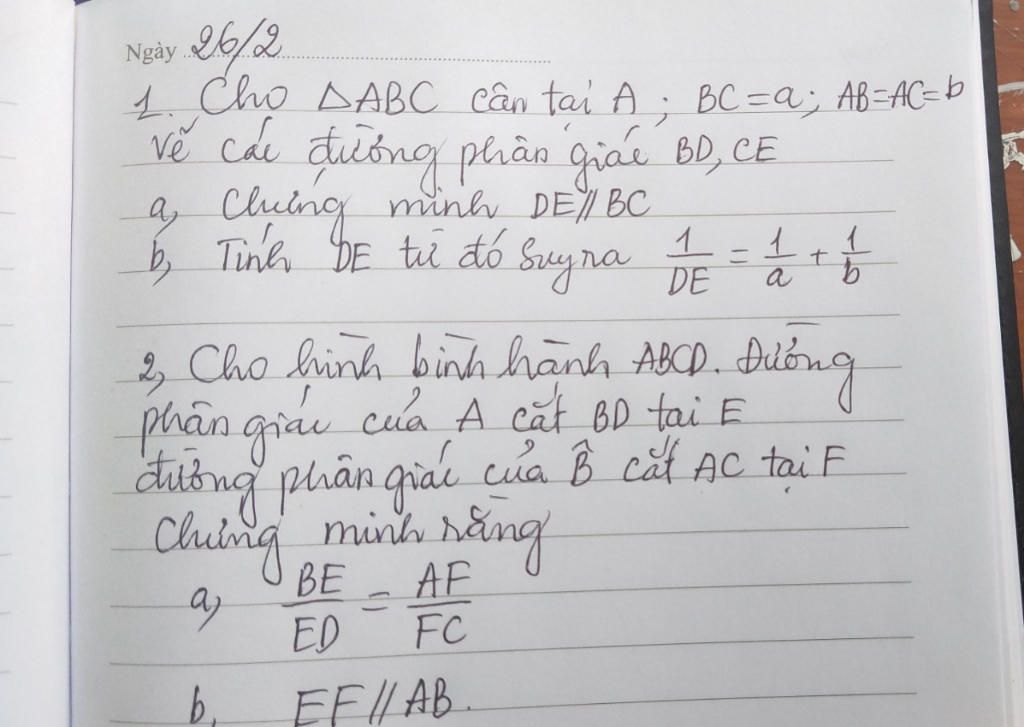 Ngày 26/2
1. Cho △ABC cân tại A; BC=a; AB=AC=b
Vẽ các đường phân giác BD, CE
a, Chứng minh DE//BC
b, Tính DE từ đó suy ra 1/DE = 1/a + 1/b
2, Cho hình bình hành ABCD. Đường
phân giác của A cắt BD tại E
đường phân giác của B̂ cắt AC tại F
Chứng minh rằng
a, BE/ED = AF/FC
b, EF//AB.